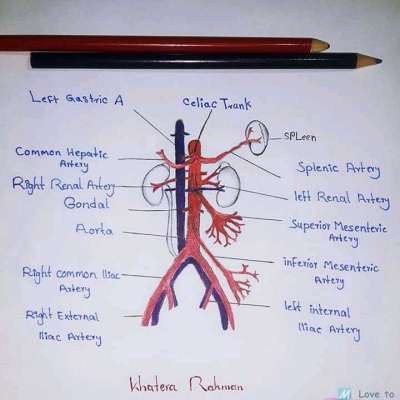 Left Gastric A
Celiac Trank
SPLeen
Common Hepatic
Artery
Splenic Artery
Right Renal Artery
left Renal Artery
Gondal
Superior Mesenteric
Artery
Aorta
inferior Mesenteric
Artery
Right common Iliac
Artery
left internal
Iliac Artery
Right External
Iliac Artery
Khatera Rahman
M Love to